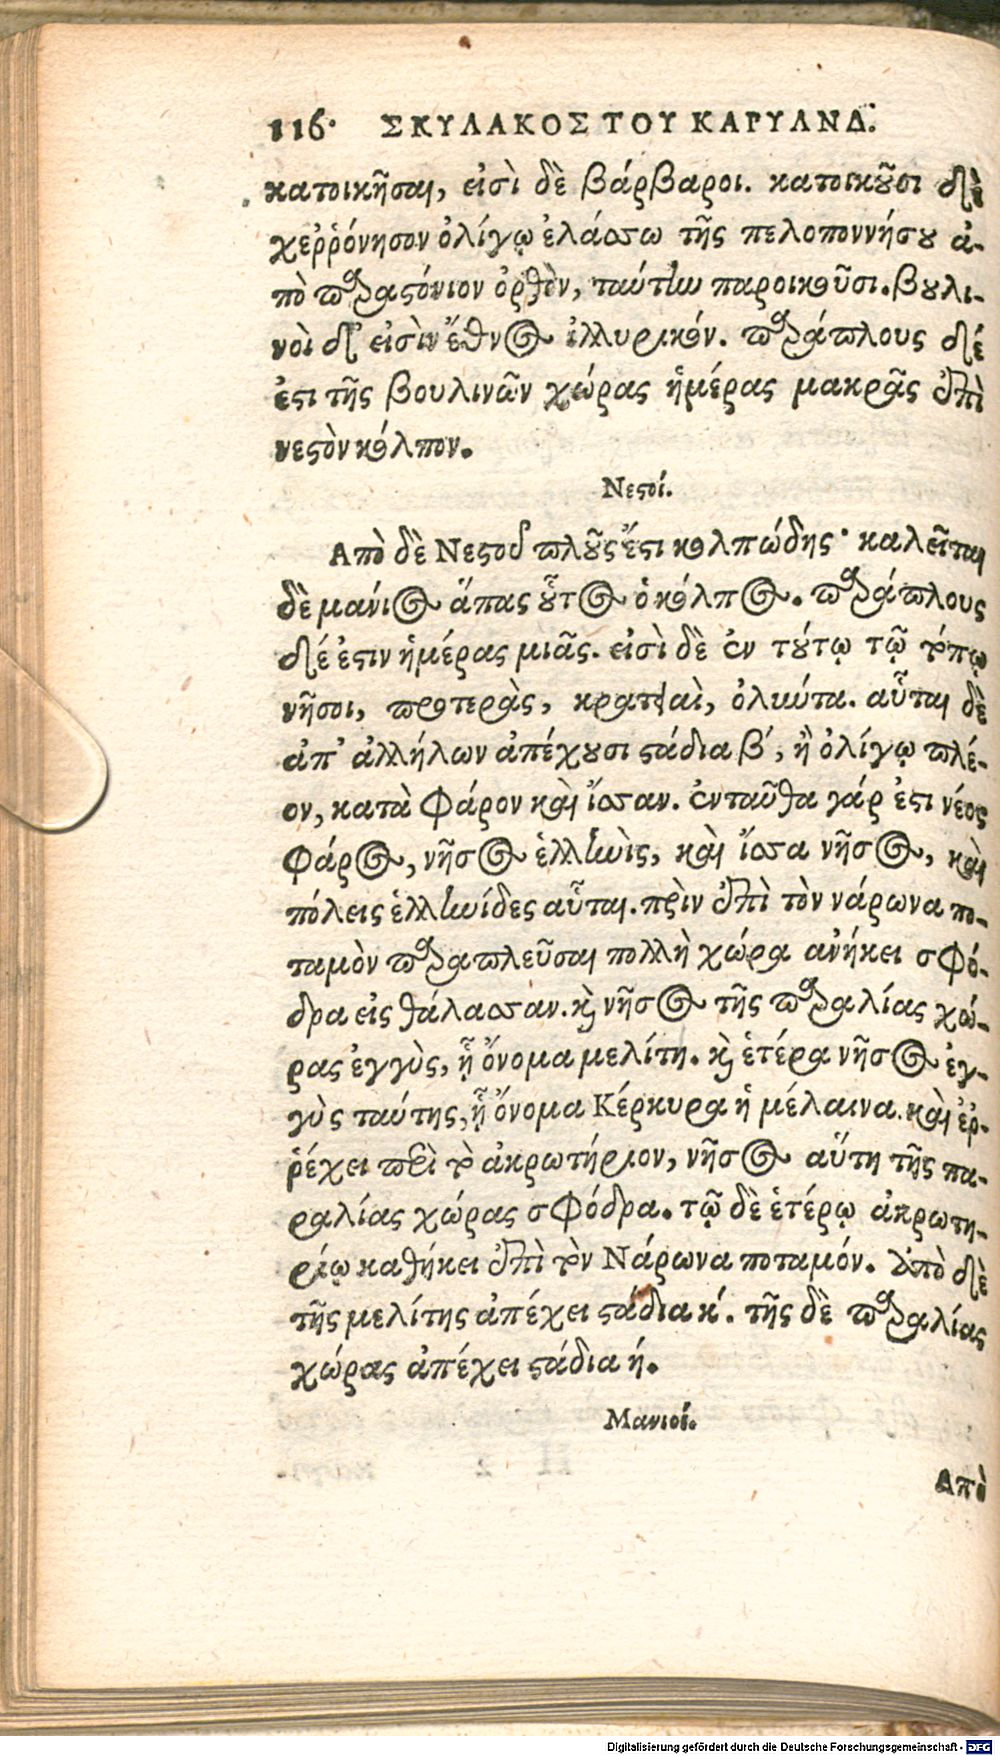 116. ΣΚΥΛΑΚΟΣ ΤΟΥ ΚΑΡΥΑΝΔ.
κατοικῆσαι, εἰσὶ δὲ βάρβαροι. κατοικοῦσι δὲ
χεῤῥόνησον ὀλίγῳ ἐλάσσω τῆς πελοποννήσου ἀ-
πὸ παραστόνιον ὀρθὸν, ταύτην παροικοῦσι. βουλι-
νοὶ δ' εἰσὶν ἔθνος ἰλλυρικόν. παράπλους δέ
ἐστι τῆς βουλινῶν χώρας ἡμέρας μακρᾶς ἐπὶ
νεστὸν κόλπον.
Νεστοί.
Ἀπὸ δὲ Νεστοῦ πλοῦς ἔστι κολπώδης· καλεῖται
δὲ μάνιος ἅπας οὗτος ὁ κόλπος. παράπλους
δέ ἐστιν ἡμέρας μιᾶς. εἰσὶ δὲ ἐν τούτῳ τῷ τόπῳ
νῆσοι, προτερὰς, κρατειαὶ, ὀλιύντα. αὗται δὲ
ἀπ' ἀλλήλων ἀπέχουσι στάδια β', ἢ ὀλίγῳ πλέ-
ον, κατὰ Φάρον καὶ ἴσσαν. ἐνταῦθα γάρ ἐστι νέος
Φάρος, νῆσος ἑλληνὶς, καὶ ἴσσα νῆσος, καὶ
πόλεις ἑλληνίδες αὗται. πρὶν ἐπὶ τὸν νάρωνα πο-
ταμὸν παραπλεῦσαι πολλὴ χώρα ἀνήκει σφό-
δρα εἰς θάλασσαν. καὶ νῆσος τῆς παραλίας χώ-
ρας ἐγγὺς, ᾗ ὄνομα μελίτη. καὶ ἑτέρα νῆσος ἐγ-
γὺς ταύτης, ᾗ ὄνομα Κέρκυρα ἡ μέλαινα. καὶ ἐῤ-
ῥέχει περὶ τὸ ἀκρωτήριον, νῆσος αὕτη τῆς πα-
ραλίας χώρας σφόδρα. τῷ δὲ ἑτέρῳ ἀκρωτη-
ρίῳ καθήκει ἐπὶ τὸν Νάρωνα ποταμόν. Ἀπὸ δὲ
τῆς μελίτης ἀπέχει στάδια κ'. τῆς δὲ παραλίας
χώρας ἀπέχει στάδια ή.
Μανιοί.
Ἀπὸ
Digitalisierung gefördert durch die Deutsche Forschungsgemeinschaft - DFG